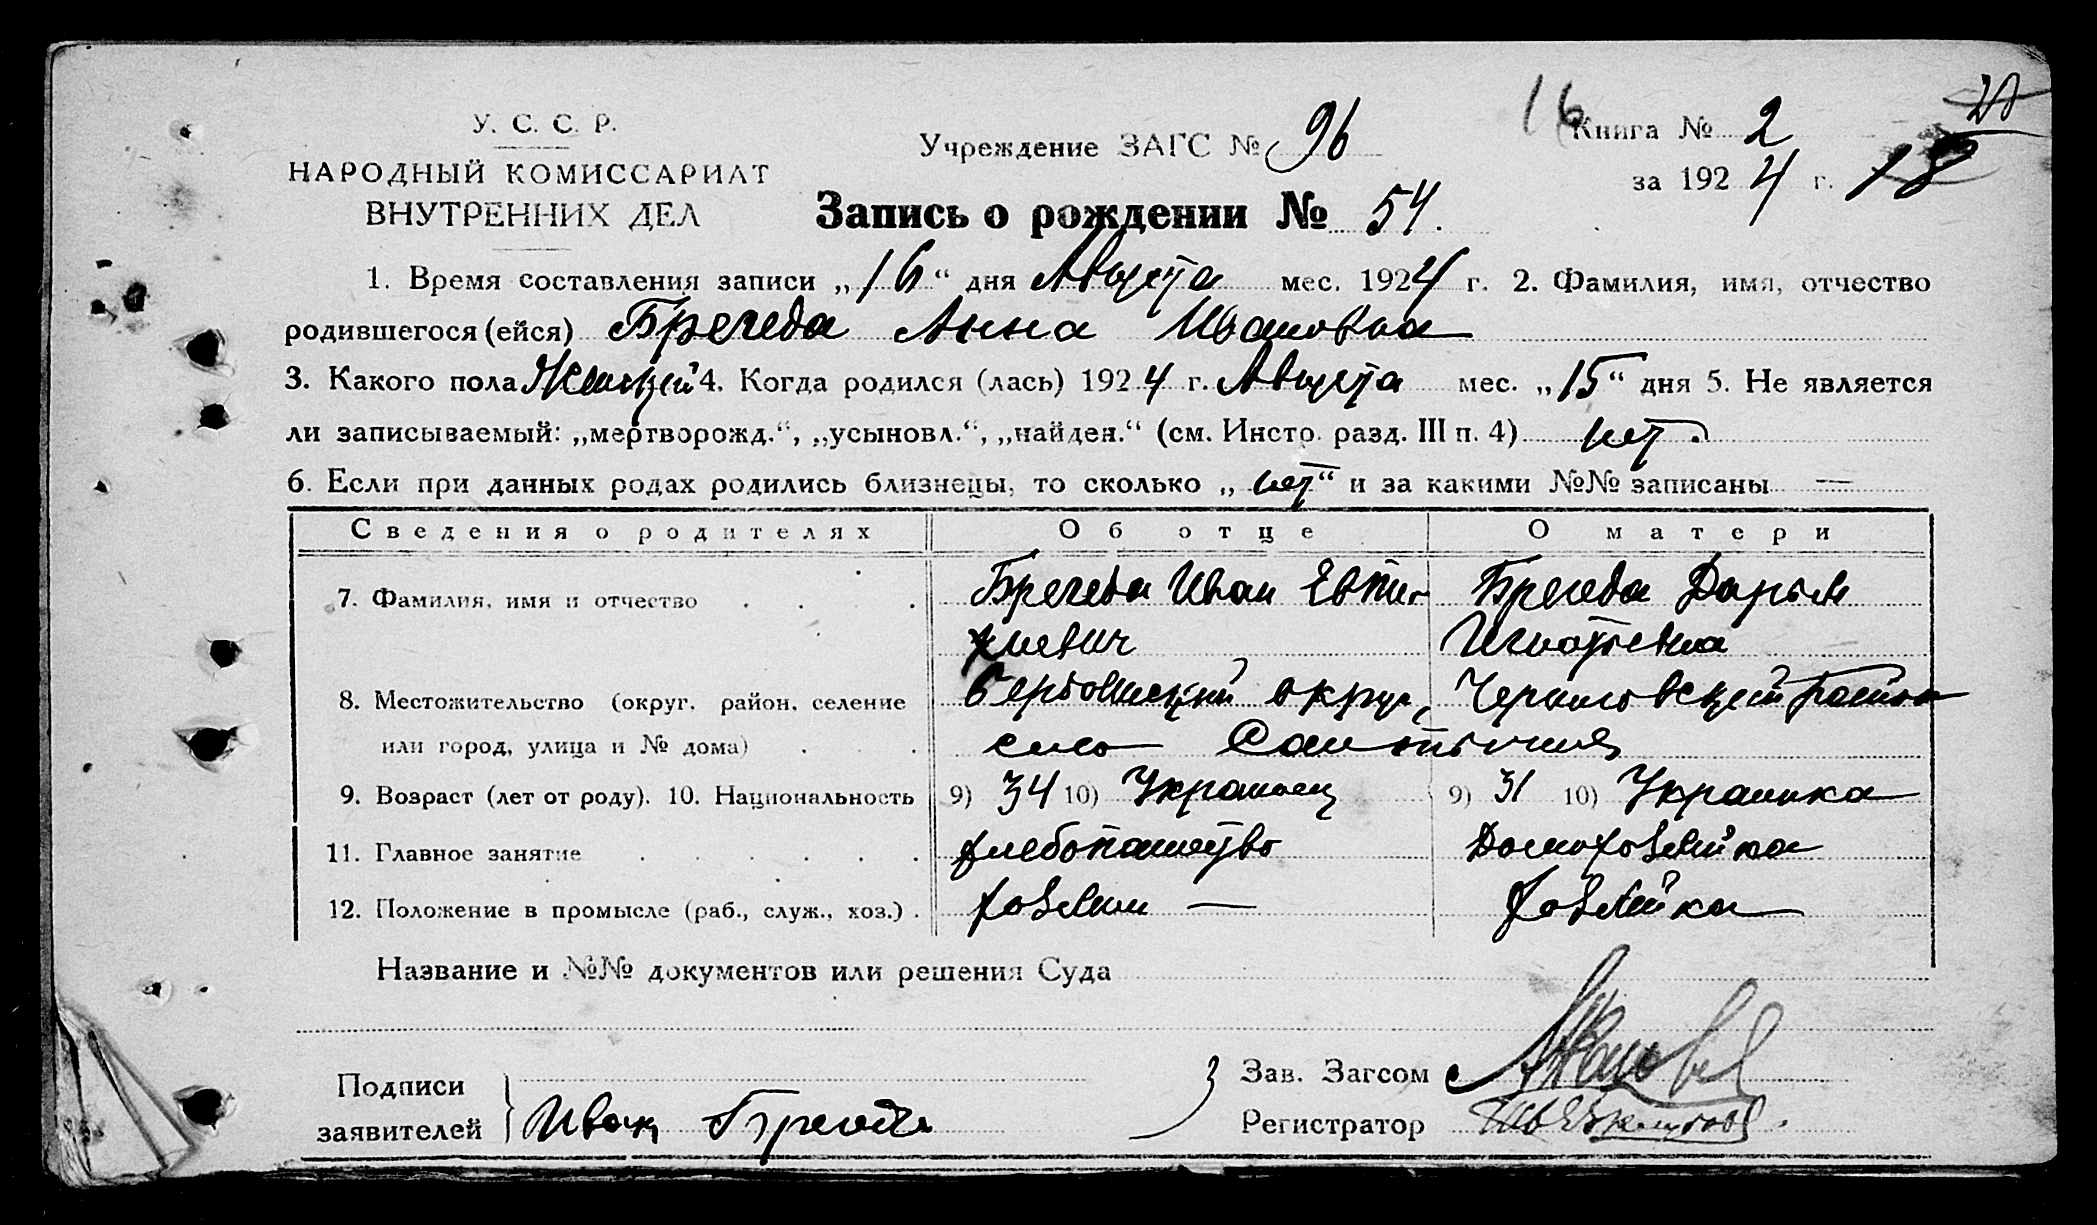 У. С. С. Р.
НАРОДНЫЙ КОМИССАРИАТ
ВНУТРЕННИХ ДЕЛ
Учреждение ЗАГС № 96
16
Книга № 2
20
за 1924 г. 18
Запись о рождении № 54.
1. Время составления записи „16“ дня Августа мес. 1924 г. 2. Фамилия, имя, отчество
родившегося (ейся) Брегеда Анна Ивановна
3. Какого пола Женский 4. Когда родился (лась) 1924 г. Августа мес. „15“ дня 5. Не является
ли записываемый: „мертворожд.“, „усыновл.“, „найден.“ (см. Инстр. разд. III п. 4) нет.
6. Если при данных родах родились близнецы, то сколько „нет“ и за какими №№ записаны —
Сведения о родителях Об отце О матери
7. Фамилия, имя и отчество Брегеда Иван Евти- Брегеда Дарья
хиевич Игнатьевна
8. Местожительство (округ, район, селение округ, район
или город, улица и № дома) село
9. Возраст (лет от роду). 10. Национальность 9) 34 10) Украинец 9) 31 10) Украинка
11. Главное занятие хлебопашество Домохозяйка
12. Положение в промысле (раб., служ., хоз.) хозяин — хозяйка
Название и №№ документов или решения Суда
Подписи
заявителей Иван Брегеда
Зав. Загсом
Регистратор